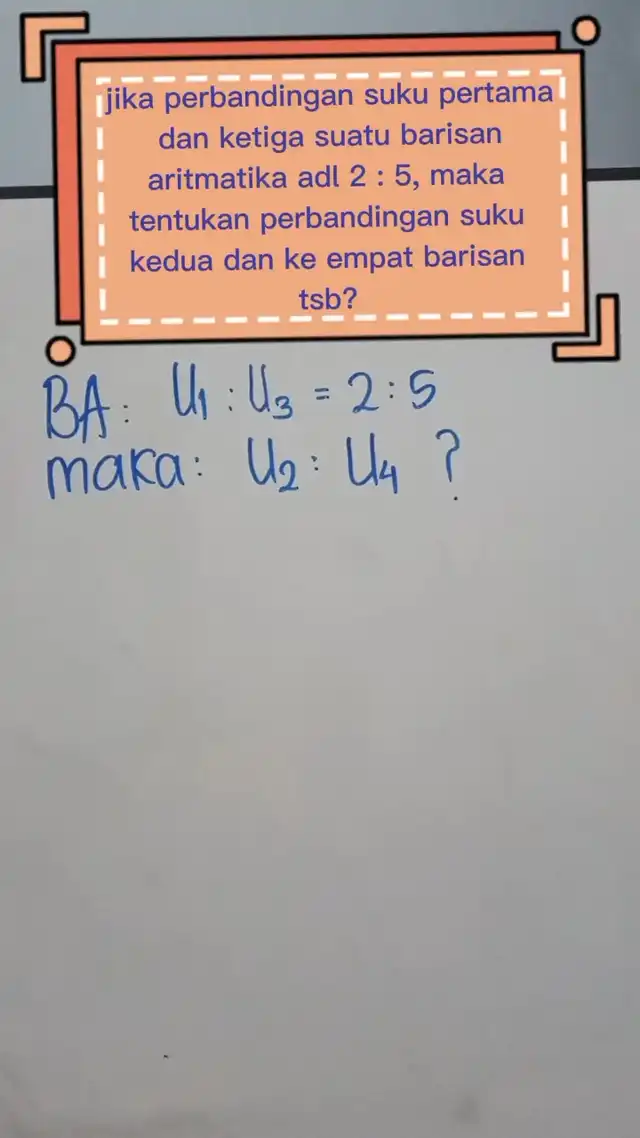 jika perbandingan suku pertama
dan ketiga suatu barisan
aritmatika adl 2 : 5, maka
tentukan perbandingan suku
kedua dan ke empat barisan
tsb?
BA: U1 : U3 = 2:5
maka: U2 : U4 ?